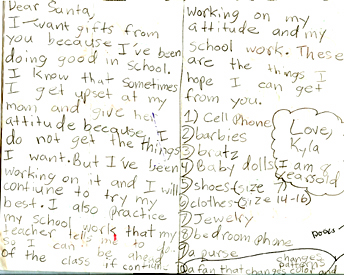 Dear Santa,
I want gifts from
you because I've been
doing good in school.
I know that sometimes
I get upset at my
mom and give her
attitude because I
do not get the things
I want. But I've been
working on it and I will
contiune to try my
best. I also practice
my school work that my
teacher tells me to do
so I can be ahead
of the class if contiu
working on my
attitude and my
school work. These
are the things I
hope I can get
from you.
1) Cell phone
2) barbies
3) bratz
4) Baby dolls
5) shoes (size 7)
6) clothes (size 14-16)
7) Jewelry
8) bedroom phone
a purse
a fan that changes color and
changes
patterns
Love,
Kyla
I am 9
years old